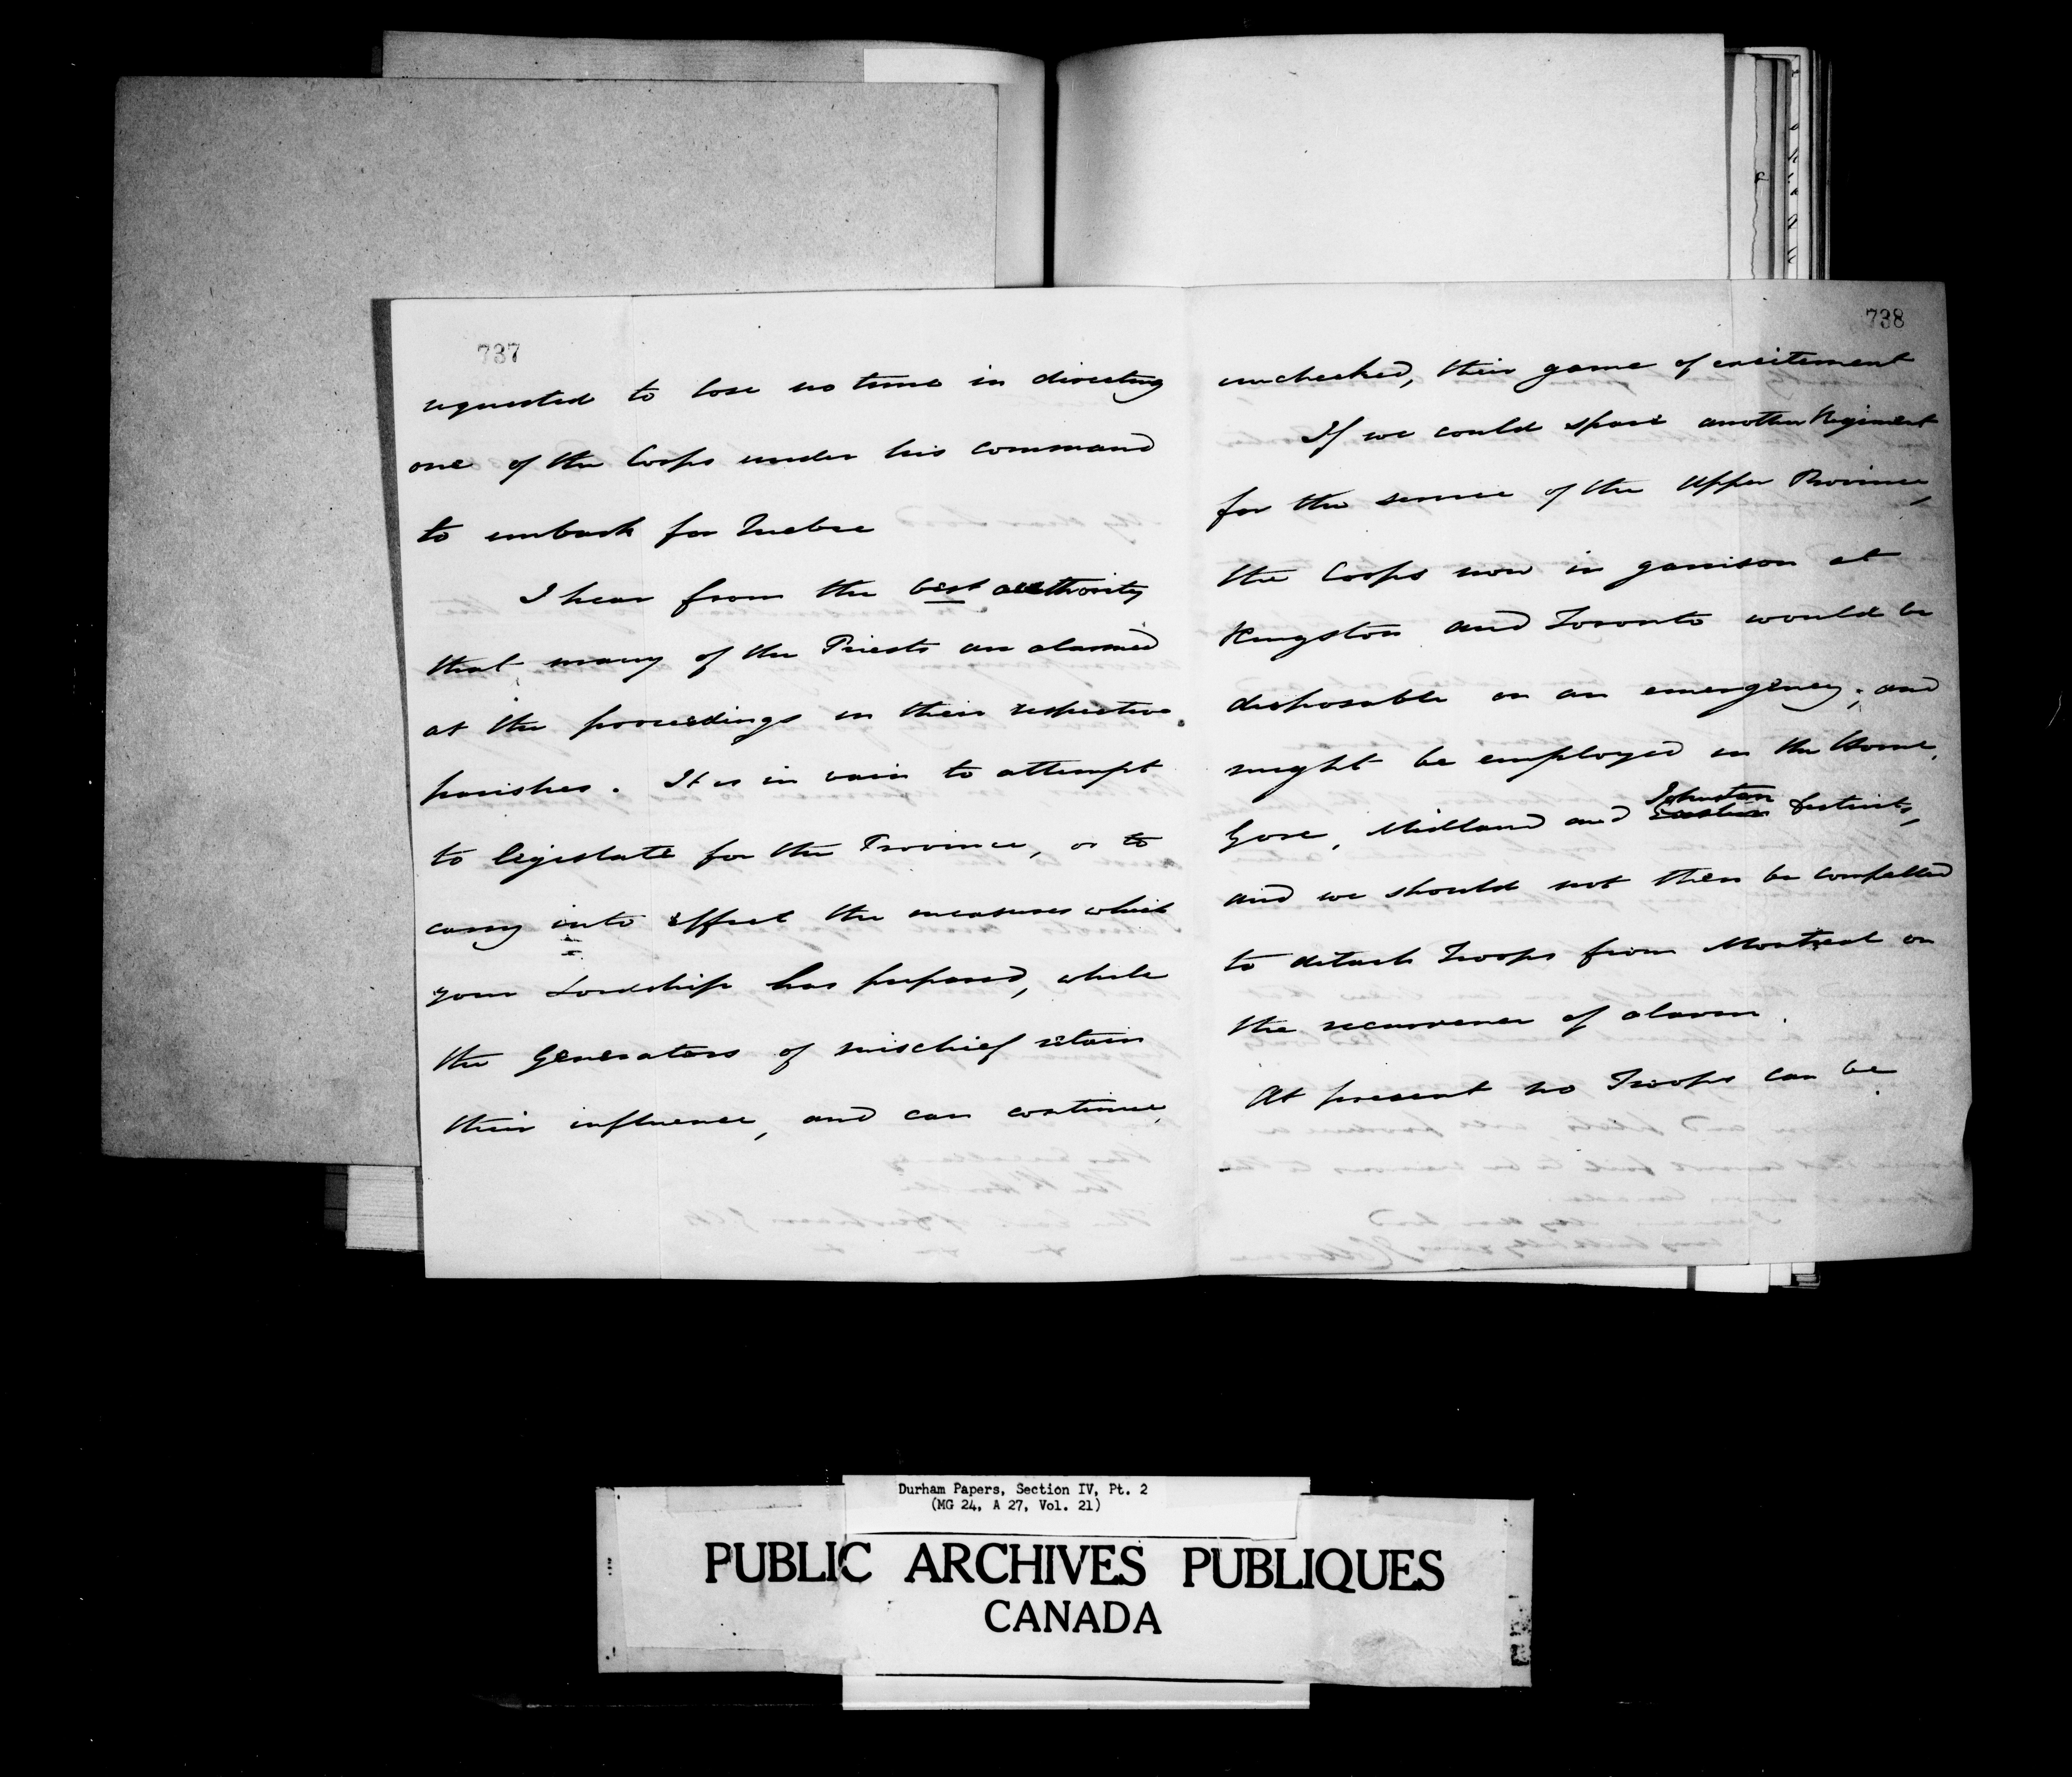 737
requested to lose no time in directing
one of the Corps under his command
to embark for Quebec
I hear from the best authority
that many of the Priests are alarmed
at the proceedings in their respective
parishes. It is in vain to attempt
to legislate for the Province, or to
carry into effect the measures which
your Lordship has prepared, while
the Generators of mischief retain
their influence, and can continue,
738
unchecked, their game of excitement
If we could spare another Regiment
for the service of the Upper Province,
the Corps now in garrison at
Kingston and Toronto would be
disposable on an emergency; and
might be employed in the Home,
Johnstown
Gore, Midland and Eastern Districts,
and we should not then be compelled
to detach Troops from Montreal on
the recurrence of alarm.
At present no Troops can be
Durham Papers, Section IV, Pt. 2
(MG 24, A 27, Vol. 21)
PUBLIC ARCHIVES PUBLIQUES
CANADA